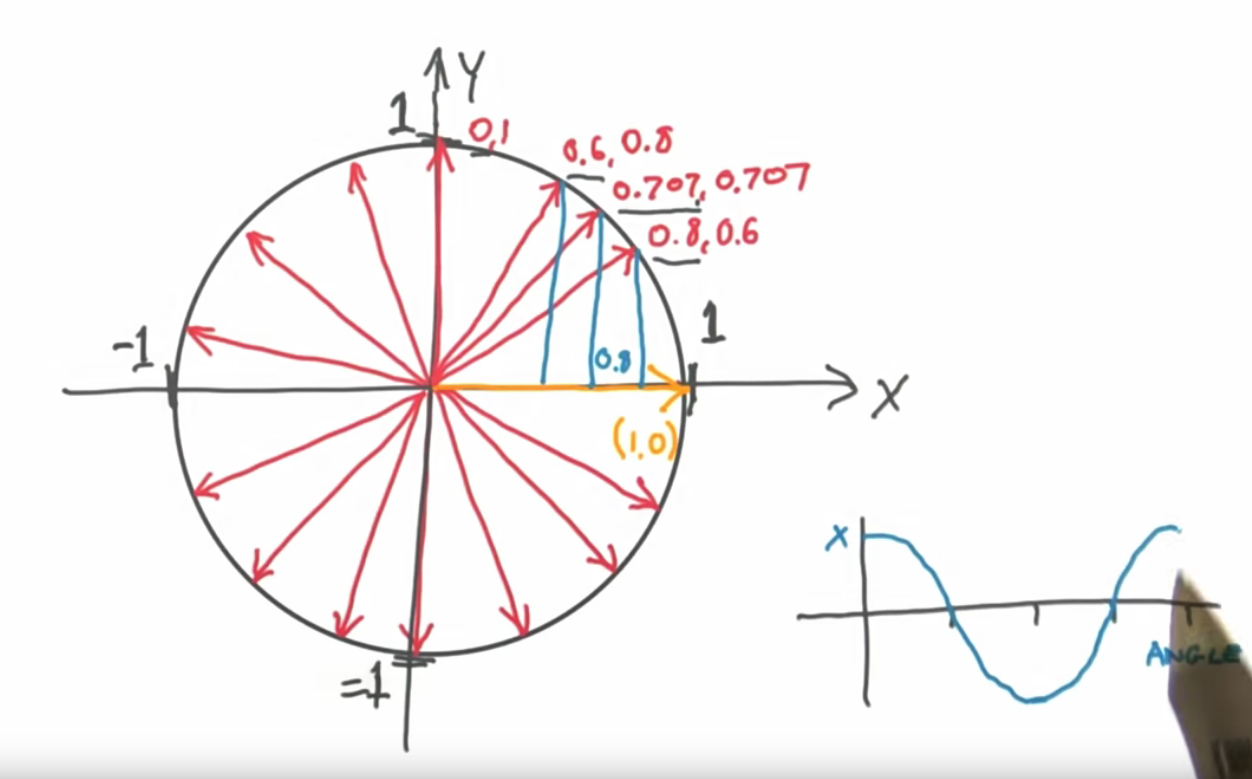 Y
1
0,1
0.6, 0.8
0.707, 0.707
0.8, 0.6
-1
1
0.8
X
(1,0)
X
ANGLE
=1